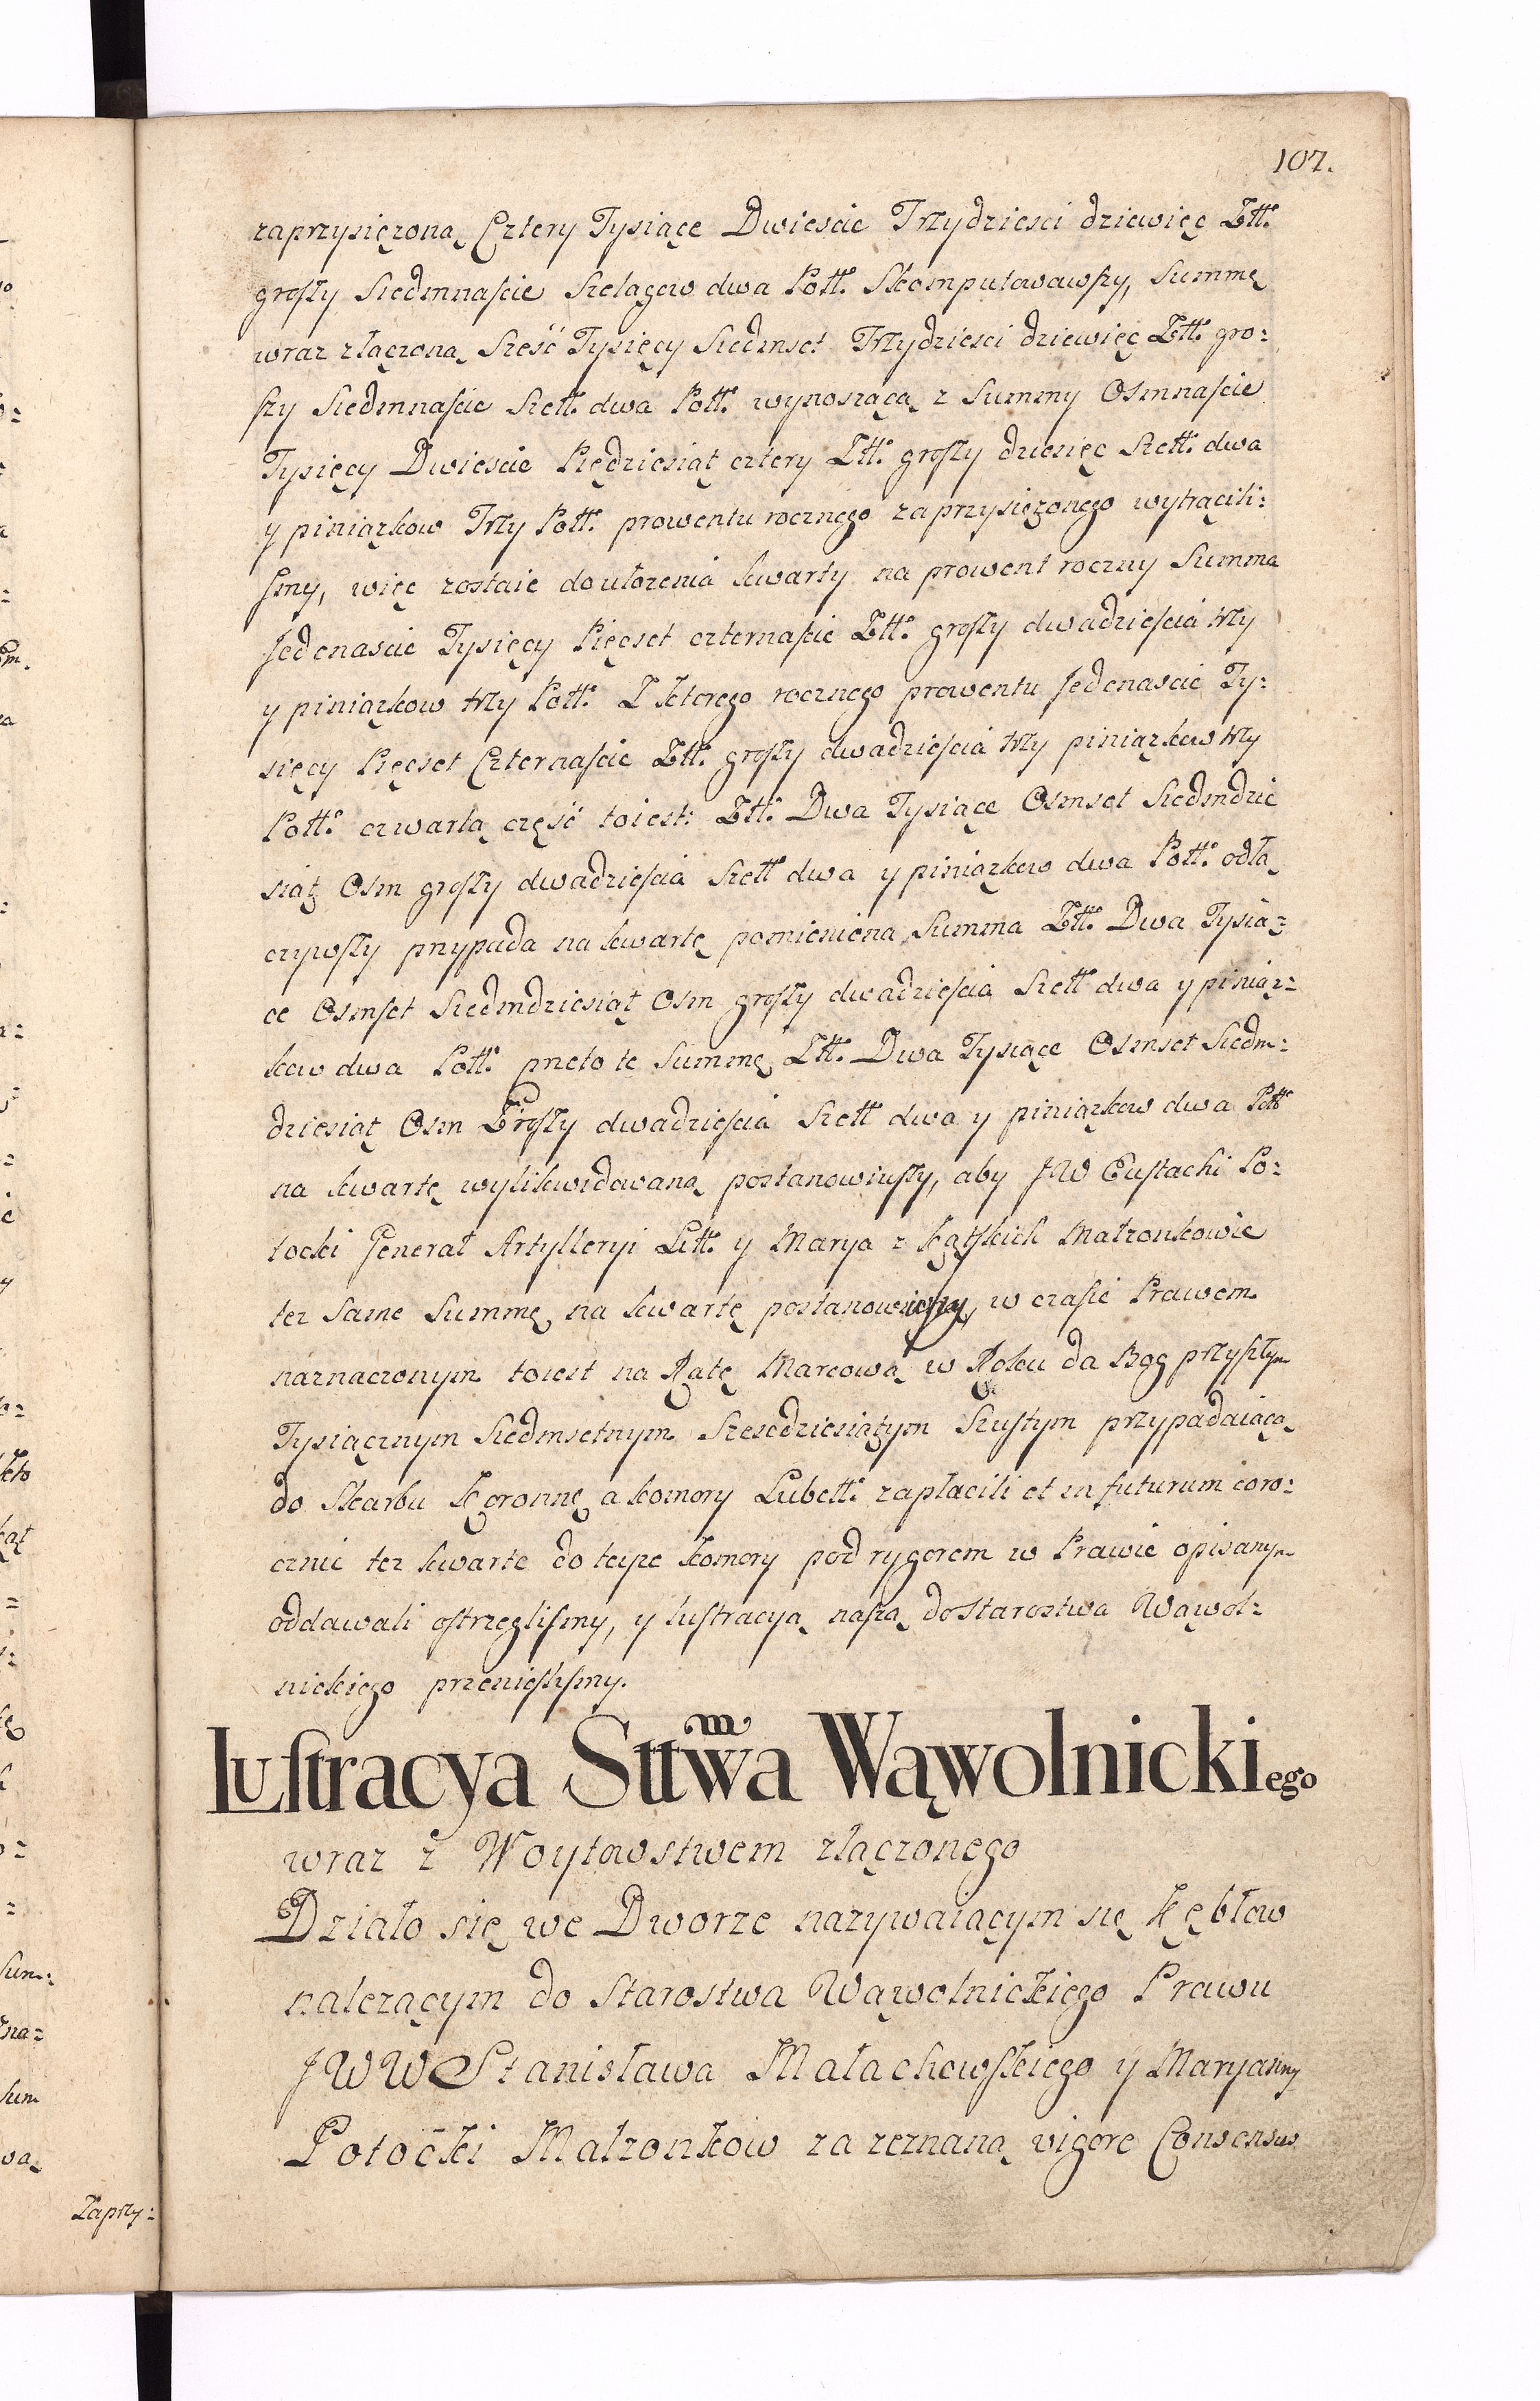 107.
zaprzysięzoną Cztery Tysiące Dwiescie Trzydziesci dziewięc Złł.
groszy Siedmnascie Szelagow dwa Poll. Skomputowawszy, Summę
wraz złączoną Sześć Tysięcy Siedmset Trzydziesci dziewięc Złł. gro:
szy Siedmnascie Szell. dwa Poll. wynoszącą z Summy Osmnascie
Tysięcy Dwiescie Pięędziesiąt cztery Złł. groszy dziesięc Szell. dwa
y piniązkow Trzy Poll. prowentu rocznego zaprzysięzonego wytrącili:
smy, więc zostaie do ułozenia kwarty na prowent roczny Summa
Jedenascie Tysięcy Pięcset czternascie Złł. groszy dwadziescia trzy
y piniązkow trzy Poll. Z ktorego rocznego prowentu Jedenascie Ty:
sięcy Pięcset Czternascie Złł. groszy dwadziescia trzy piniązkow trzy
Poll. czwartą część toiest: Złł. Dwa Tysiące Osmset Siedmdzie
siąt Osm groszy dwadziescia Szell dwa y piniązkow dwa Poll. odłą
czywszy przypada na kwartę pomieniona Summa Złł. Dwa Tysią:
ce Osmset Siedmdziesiąt Osm groszy dwadziescia Szell dwa y piniąz:
kow dwa Poll. przeto te Summę Złł. Dwa Tysiące Osmset Siedm:
dziesiąt Osm Groszy dwadziescia Szell dwa y piniązkow dwa Poll
na kwartę wylikwidowaną postanowiwszy, aby JW Eustachi Po:
tocki Generał Artylleryi Litt. y Marya z Kątskich Małzonkowie
tez same Summę na kwartę postanowioną, w czasie Prawem
naznaczonym toiest na Ratę Marcową w Roku da Bog przyszłym
Tysiącznym Siedmsetnym Szescdziesiątym Szustym przypadaiącą
do Skarbu Koronne a komory Lubell. zapłacili et in futurum coro:
cznie tez kwarte do teyze komory pod rygorem w Prawie opisanym
oddawali ostrzeglismy, y lustracyą naszą do Starostwa Wąwol:
nickiego przenieslismy.
Lustracya Sttwa Wąwolnickiego
wraz z Woytowstwem złączonego
Działo się we Dworze nazywaiącym się Kębłow
nalezącym do Starostwa Wąwolnickiego Prawu
JWW Stanisława Małachowskiego y Maryanny
Potocki Małzonkow za zeznaną vigore Consensus